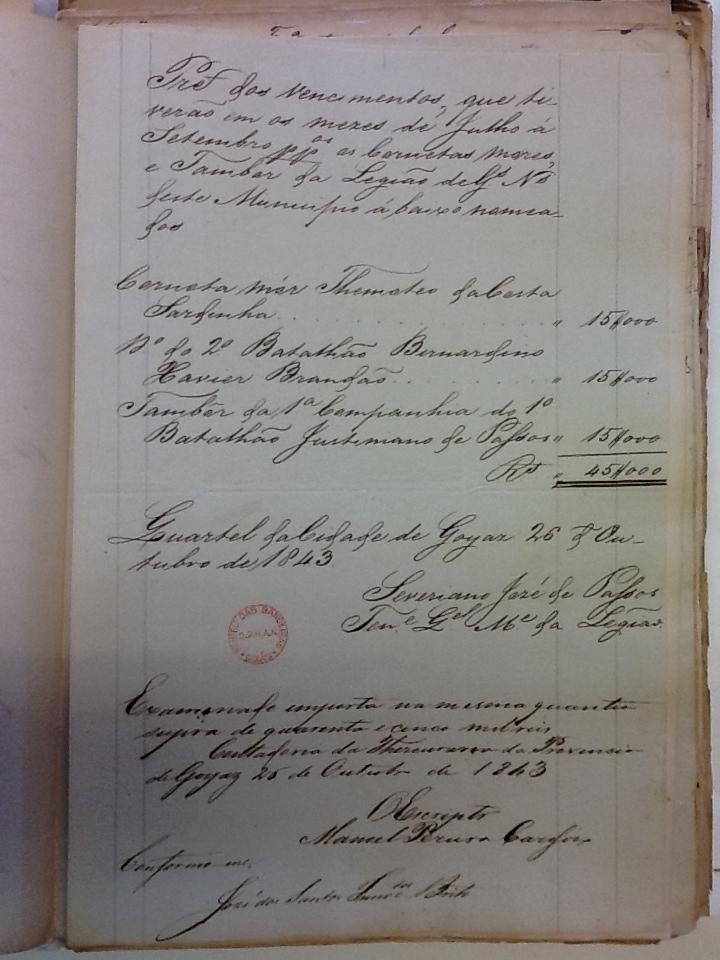 Pret dos vencimentos, que ti-
verão em os mezes de Julho á
Setembro pp.os os Cornetas móres,
e Tambor da Legião de G.s N.s
deste Municipio á baixo nomea-
dos
Corneta mór Themoteo da Costa
Sardinha . . . . . . . . . . . " 15$000
D.o do 2.o Batalhão Bernardino
Xavier Brandão . . . . . . . . " 15$000
Tambôr da 1.a Companhia do 1.o
Batalhão Justiniano de Passos " 15$000
R.s " 45$000
Quartel da Cidade de Goyaz 26 de Ou-
tubro de 1843.
Severiano José de Passos
Ten.e G.el M.e da Legião.
MUSEU DAS BANDEIRAS
Examinado importa na mesma quantia
supra de quarenta e cinco mil reis
Contadoria da Thesouraria da Provincia
de Goyaz 26 de Outubro de 1843
O Escript.o
Manoel Pereira Cardozo
Conforme
José dos Santos Brito